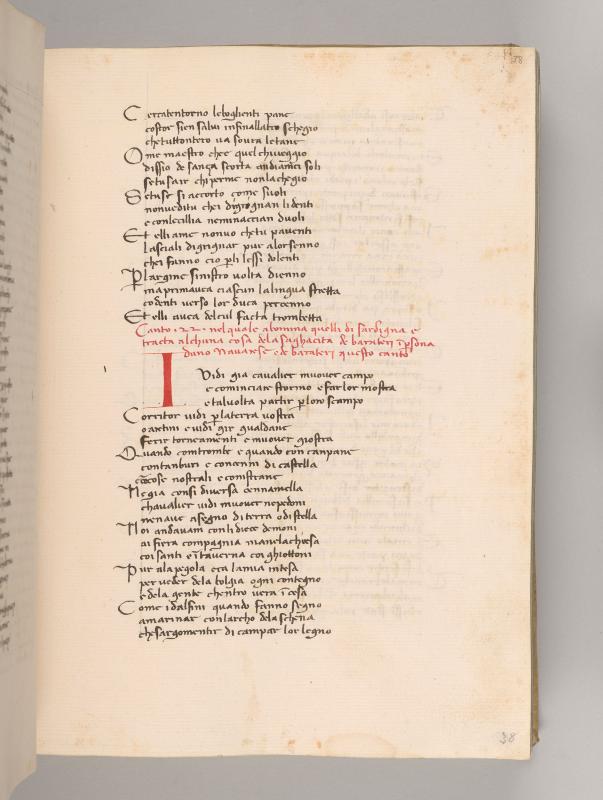 38
Cercatentorno leboglienti pane
costor sien salvi infinallatro schegio
chetuttontero va sovra letane
Ome maestro chee quelchiveggio
dissio de sança scorta andianci soli
setusair chiperme nonlachegio
Setuse si accorto come suoli
nonveditu chei digrognan lidenti
e conlecillia neminaccian duoli
Et elli ame nonvo chetu paventi
lasciali digrignar pur alorsenno
chei fanno cio pli lessi dolenti
Plargine sinistro volta dienno
maprimavea ciascun lalingua stretta
codenti verso lor duca percenno
Et elli avea delcul facta trombetta
Canto .22. nel quale abomina quelli di sardigna e
tracta alchuna cosa dela saghacita de baratieri i psona
dano Navarese e de barateri questo canto
I Vidi gia cavalier muover campo
e cominciare stormo e far lor mostra
e talvolta partir p loro scampo
Corritor vidi p laterra vostra
o aretini e vidi gir gualdane
ferir torneamenti e muover giostra
Quando contrombe e quando con canpane
contanburi e concenni di castella
e cose nostrali e constrane
Negia consi diversa cennamella
chavalier vidi muover nepedoni
nenave asegno di terra odistella
Noi andavam conli diece demoni
ai fiera compagnia manelachiesa
coi santi e i taverna coi ghiottoni
Pur ala pegola era lamia intesa
per veder dela bolgia ogni contegno
e dela gente chentro vera icesa
Come idalfini quando fanno segno
amarinar conlarcho dela schena
che sargomentir di campar lor legno
38